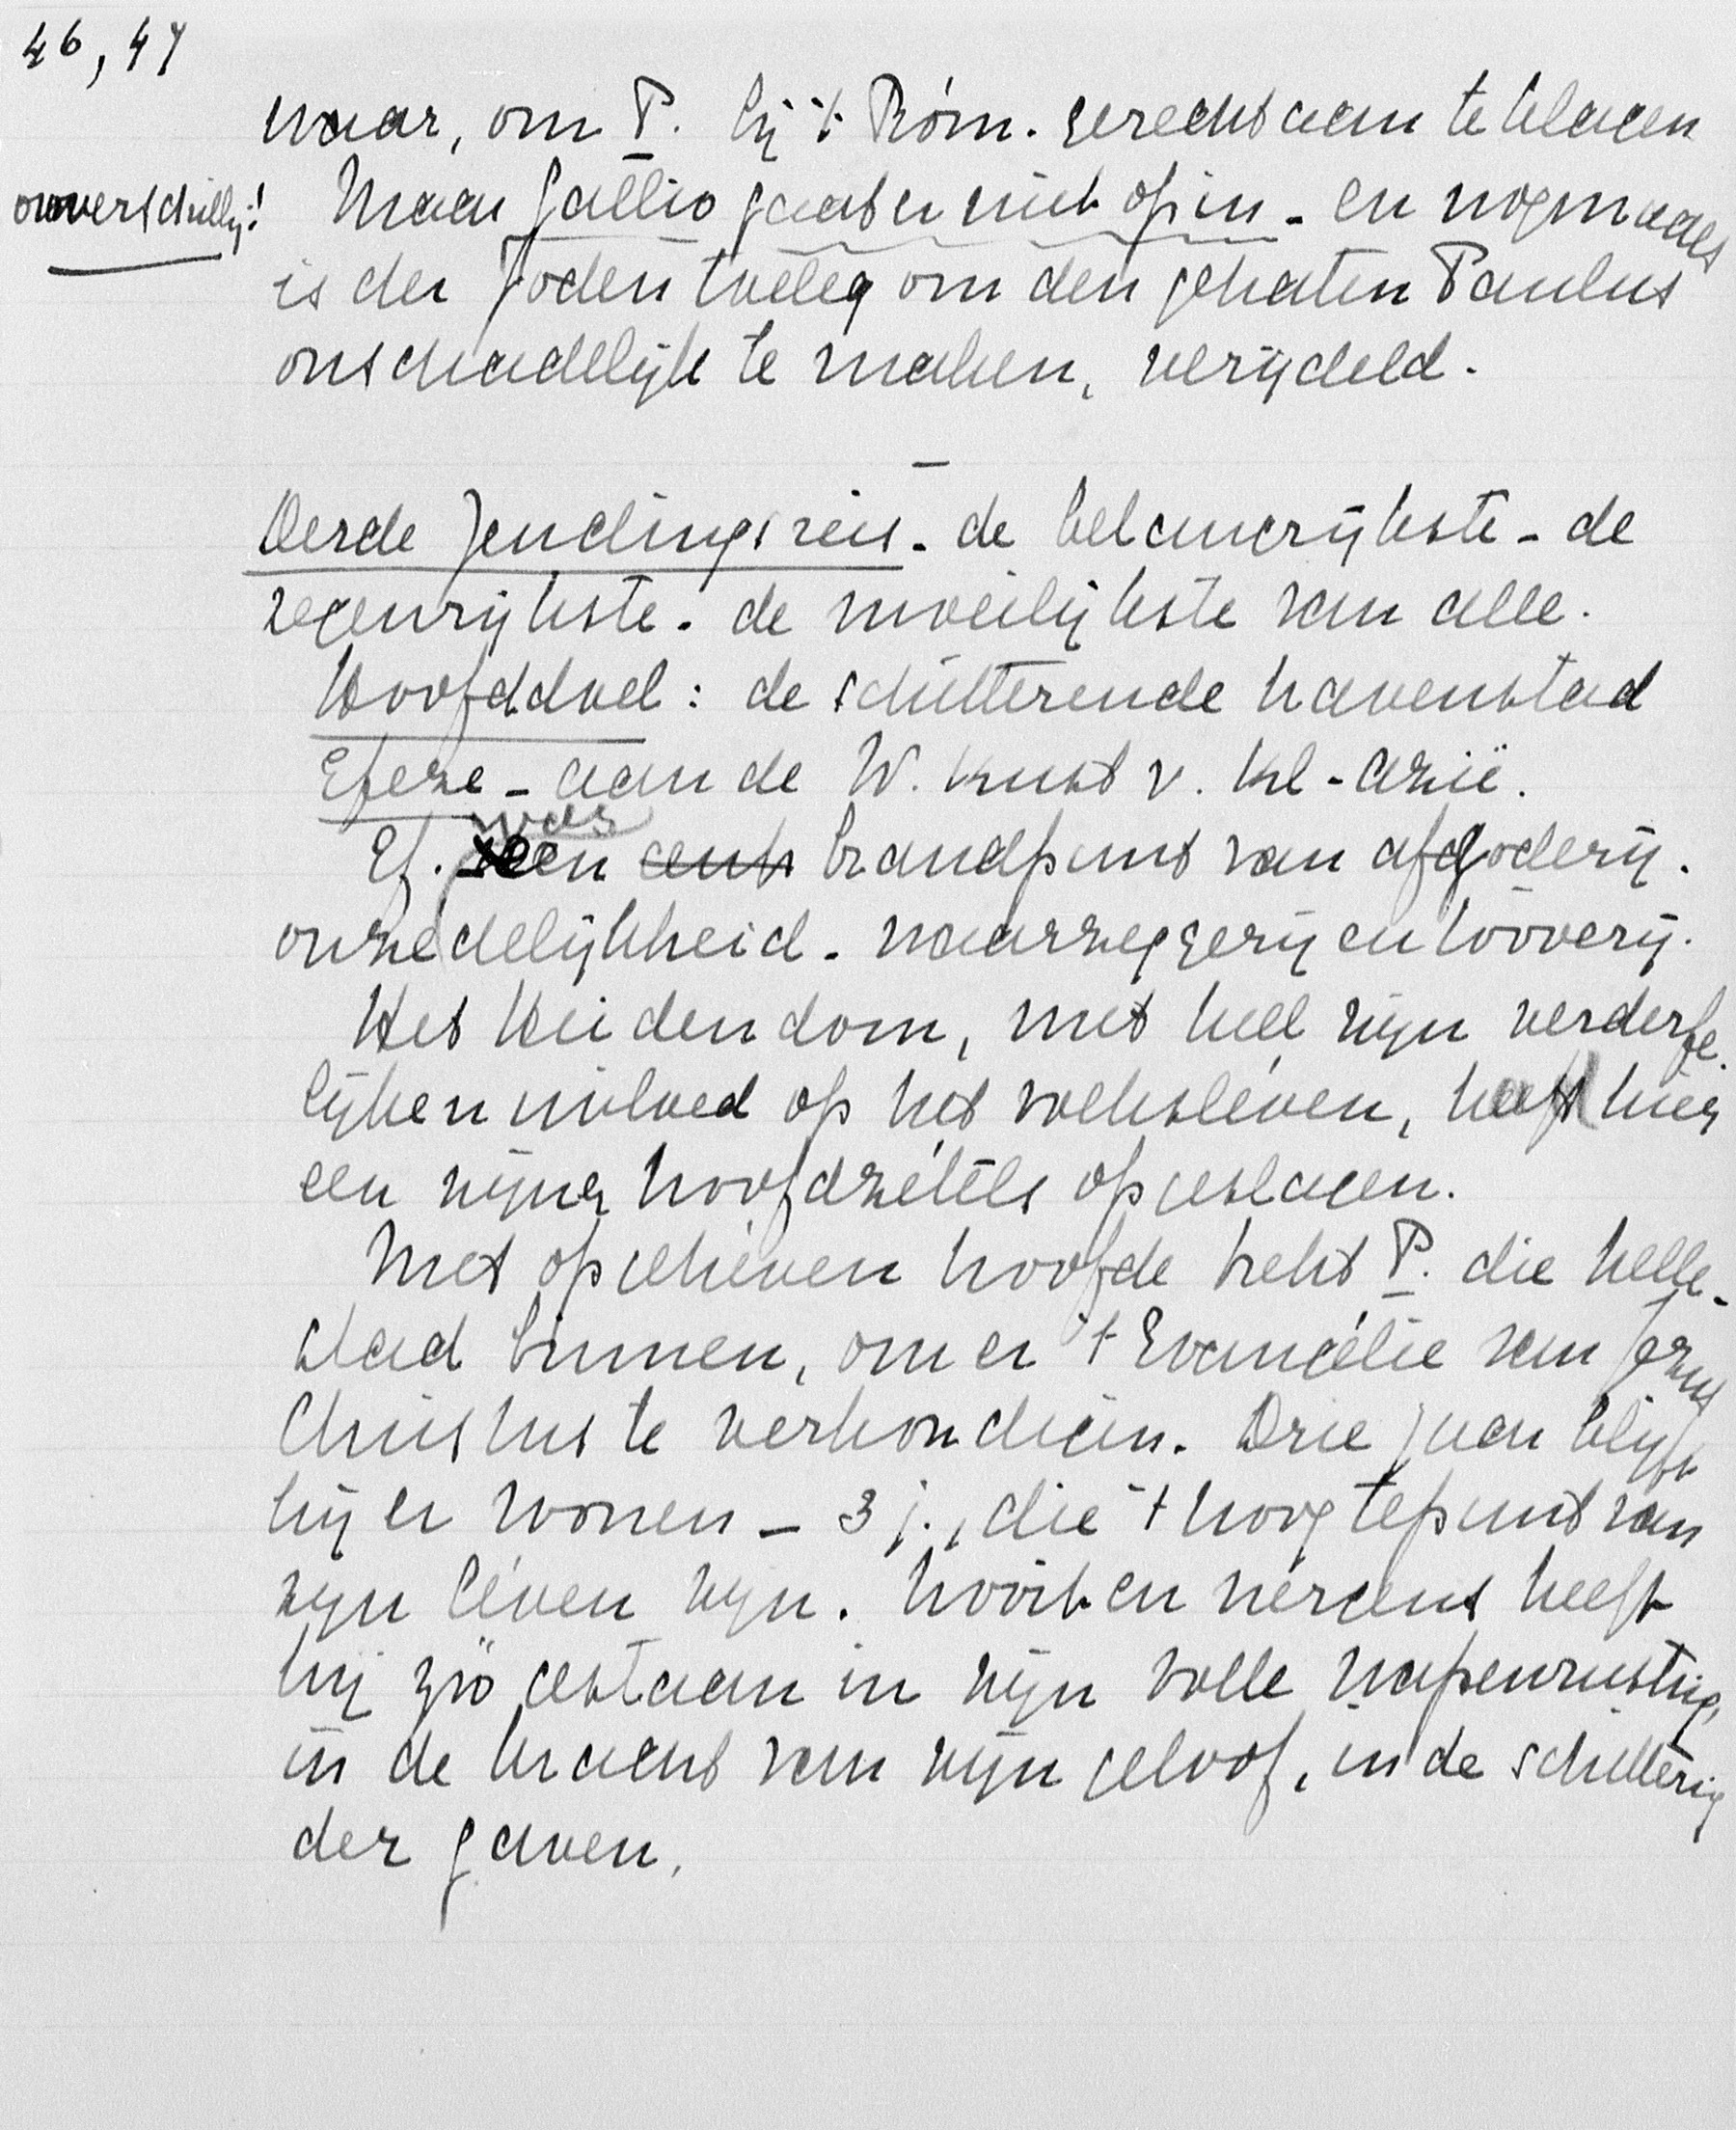 46, 47
waar, om P. bij 't Róm. gerecht aan te klagen
onverschillig!
Maar Gallio gaat er niet op in - en nogmaals
is der Joden toeleg om den gehaten Paulus
onschadelijk te maken, verijdeld.
Derde Zendingsreis - de belangrijkste - de
zegenrijkste - de moeilijkste van alle.
Hoofddoel: de schitterende havenstad
Efeze - aan de W. kust v. Kl-Azië.
was
Ef. een cent brandpunt van afgoderij.
onzedelijkheid - waarzeggerij en toovery.
Het Heidendom, met heel zijn verderfe-
lijken invloed op het volksléven, heeft hier
een zijner hoofdzétels opgeslagen.
Met opgehéven hoofde trekt P. die helle-
stad binnen, om er 't Evangélie van Jezus
Christus te verkondigen. Drie jaar blijft
hij er wonen - 3 j., die 't hoogtepunt van
zijn léven zijn. Nooit en nérgens heeft
hij zóó gestaan in zijn volle wapenrusting,
in de kracht van zijn geloof, in de schittering
der gaven.